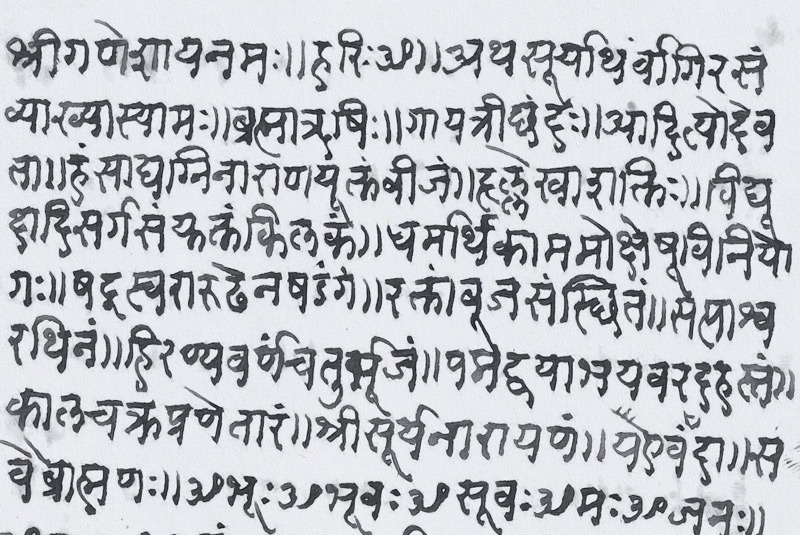 श्रीगणेशायनमः॥हरिःॐ॥अथसूर्याथर्वांगिरसं
व्याख्यास्यामः॥ब्रह्माऋषिः॥गायत्रीछंदः॥आदित्योदेव
ता॥हंसाद्यग्निनाराणयूक्तंबीजं॥हृल्लेखाशक्तिः॥विद्यू
दादिसर्गसंयुक्तंकिलकं॥धमर्थिकाममोक्षेषूविनियो
गः॥षट्स्वरारुढेनषडंगं॥रक्तांबूजसंस्थितं॥सप्ताश्व
रथिनं॥हिरण्यवर्णंचतुर्भूजं॥पद्मेद्वयाभयवरदहस्तं॥
कालचक्रप्रणेतारं॥श्रीसूर्यनारायणं॥यएवंदा॥स
वैब्राह्मणः॥ॐभूःॐभूवःॐसूवःॐमःॐजनः॥